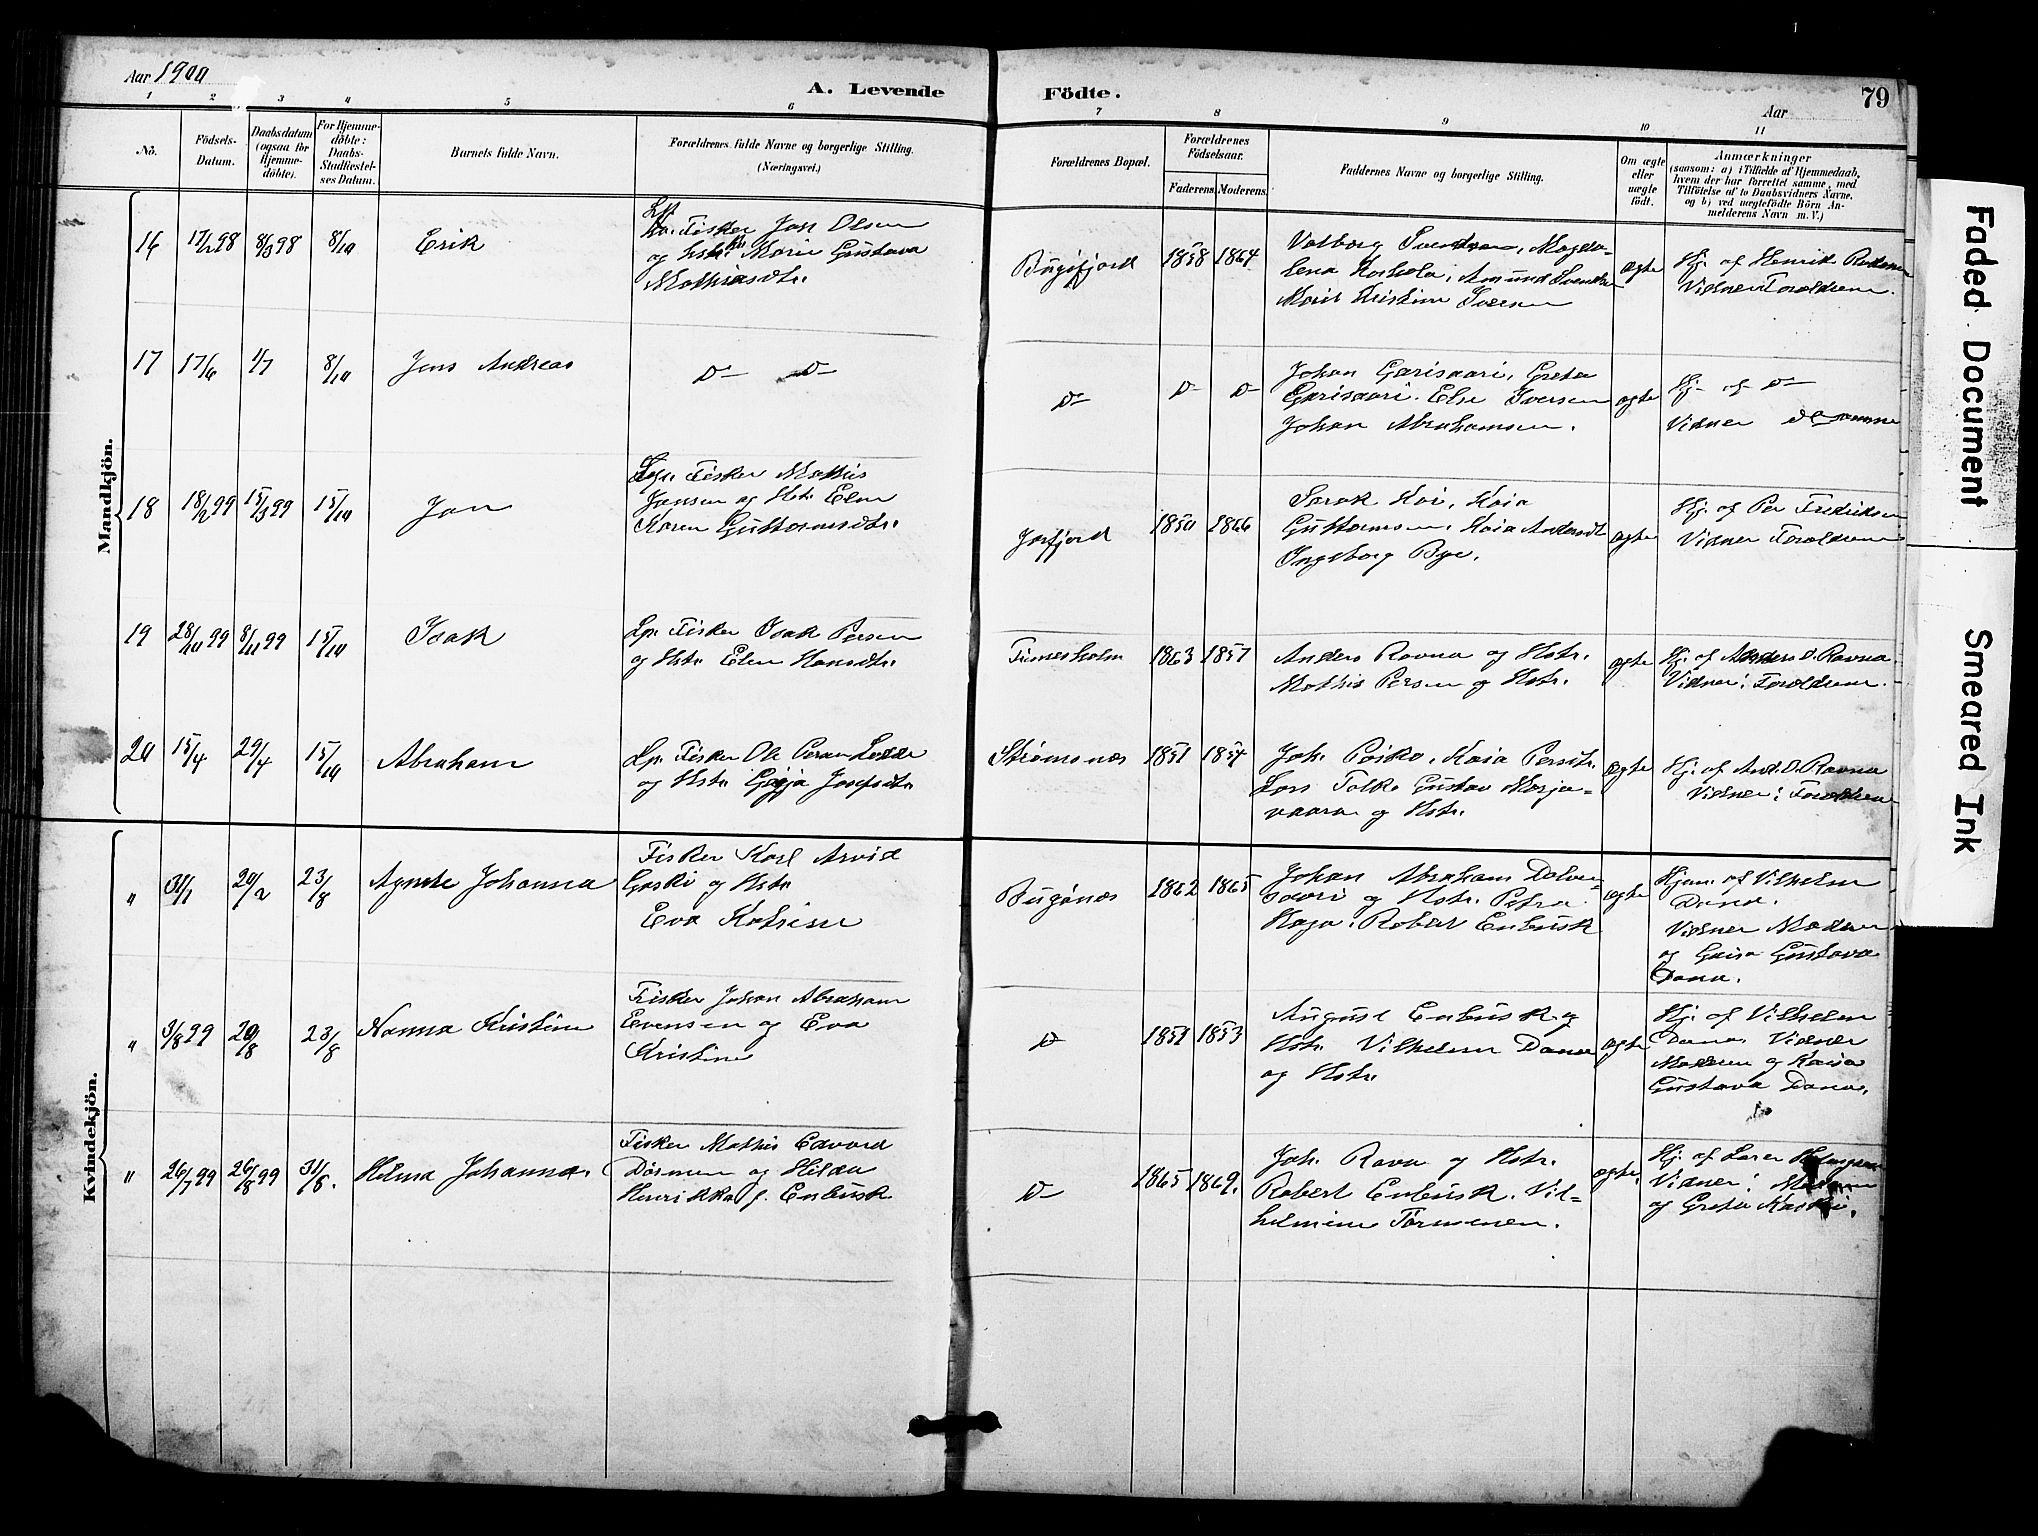 Aar 1900
A. Levende Födte.
Aar
79
1 2 3 4 5 6 7 8 9 10 11
No.
Födsels-
Datum.
Daabsdatum
(ogsaa for
Hjemme-
döbte).
For Hjemme-
döbte:
Daabs-
Stadfæstel-
ses Datum.
Barnets fulde Navn.
Forældrenes fulde Navne og borgerlige Stilling.
(Næringsvei.)
Forældrenes Bopæl.
Forældrenes
Födselsaar.
Faderens. Moderens.
Faddernes Navne og borgerlige Stilling.
Om ægte
eller
uægte
födt.
Anmærkninger
(saasom: a) i Tilfælde af Hjemmedaab,
hvem der har forrettet samme, med
Tilföielse af to Daabsvidners Navne,
og b) ved uægtefödte Börn An-
melderens Navn m. V.)
Mandkjön.
16 17/2 98 8/3 98 8/10 Erik
Fisker Jon Olsen
og Hstr. Marie Gustava
Mathiasdtr.
Bugøfjord 1858 1864
Valborg Svendsen, Magda-
lena Amund Svendsen
Marit Kristine Iversen
ægte
Hj. af Henrik
Vidner Forældrene.
17 17/6 1/7 8/10 Jens Andreas
D- D-
D- D- D-
Johan Garisaari, Greta
Garisaari. Else Iversen
Johan Abrahamsen.
ægte
Hj. af D-
Vidner de samme
18 18/2 99 15/3 99 15/10 Jon
Lp. Fisker Mathis
Jonsen og Hstr. Elen
Karen Guttormsdtr.
Jarfjord 1850 1866
Sarak Koi, Kaia
Guttormsen, Kaia Andersdtr
Ingeborg Bye.
ægte
Hj. af Per Fredriksen
Vidner Forældrene
19 28/10 99 8/11 99 15/10 Isak
Lp. Fisker Isak Persen
og Hstr. Elen Hansdtr.
1863 1857
Anders Ravna og Hstr.
Mathis Persen og Hstr.
ægte
Hj. af Anders O. Ravna.
Vidner: Forældrene.
20 15/4 29/4 15/10 Abraham
Lp. Fisker Ole Persen
og Hstr. Josefsdtr.
Strømsnæs 1851 1854
Joh. Kaia Persdtr.
Lars Gustav
og Hstr.
ægte
Hj. af And. O. Ravna
Vidner: Forældrene
Kvindekjön.
" 31/1 20/2 23/8 Agnete Johanna
Fisker Karl Arvid
og Hstr
Eva Katrine
Bugønæs 1862 1865
Johan Abraham
og Hstr. Petra
Haga. Robert Enbusk
ægte
Hjem. af Vilhelm
Dana.
Vidner Moderen
og Gustava
Dana.
" 3/8 99 20/8 23/8 Nanna Kristine
Fisker Johan Abraham
Evensen og Eva
Kristine
D- 1851 1853
August Enbusk og
Hstr. Vilhelm Dana
og Hstr.
ægte
Hj. af Vilhelm
Dana. Vidner
Moderen og Kaisa
Gustava Dana.
" 26/7 99 26/8 99 31/8. Hilma Johanna.
Fisker Mathis Edvard
og Hilda
Henrikka f. Enbusk
D- 1865 1869.
Joh. Rava og Hstr.
Robert Enbusk. Vil-
helmine Tormenen.
ægte.
Hj. af
Vidner: Moderen
og Greta
Faded Document
Smeared Ink